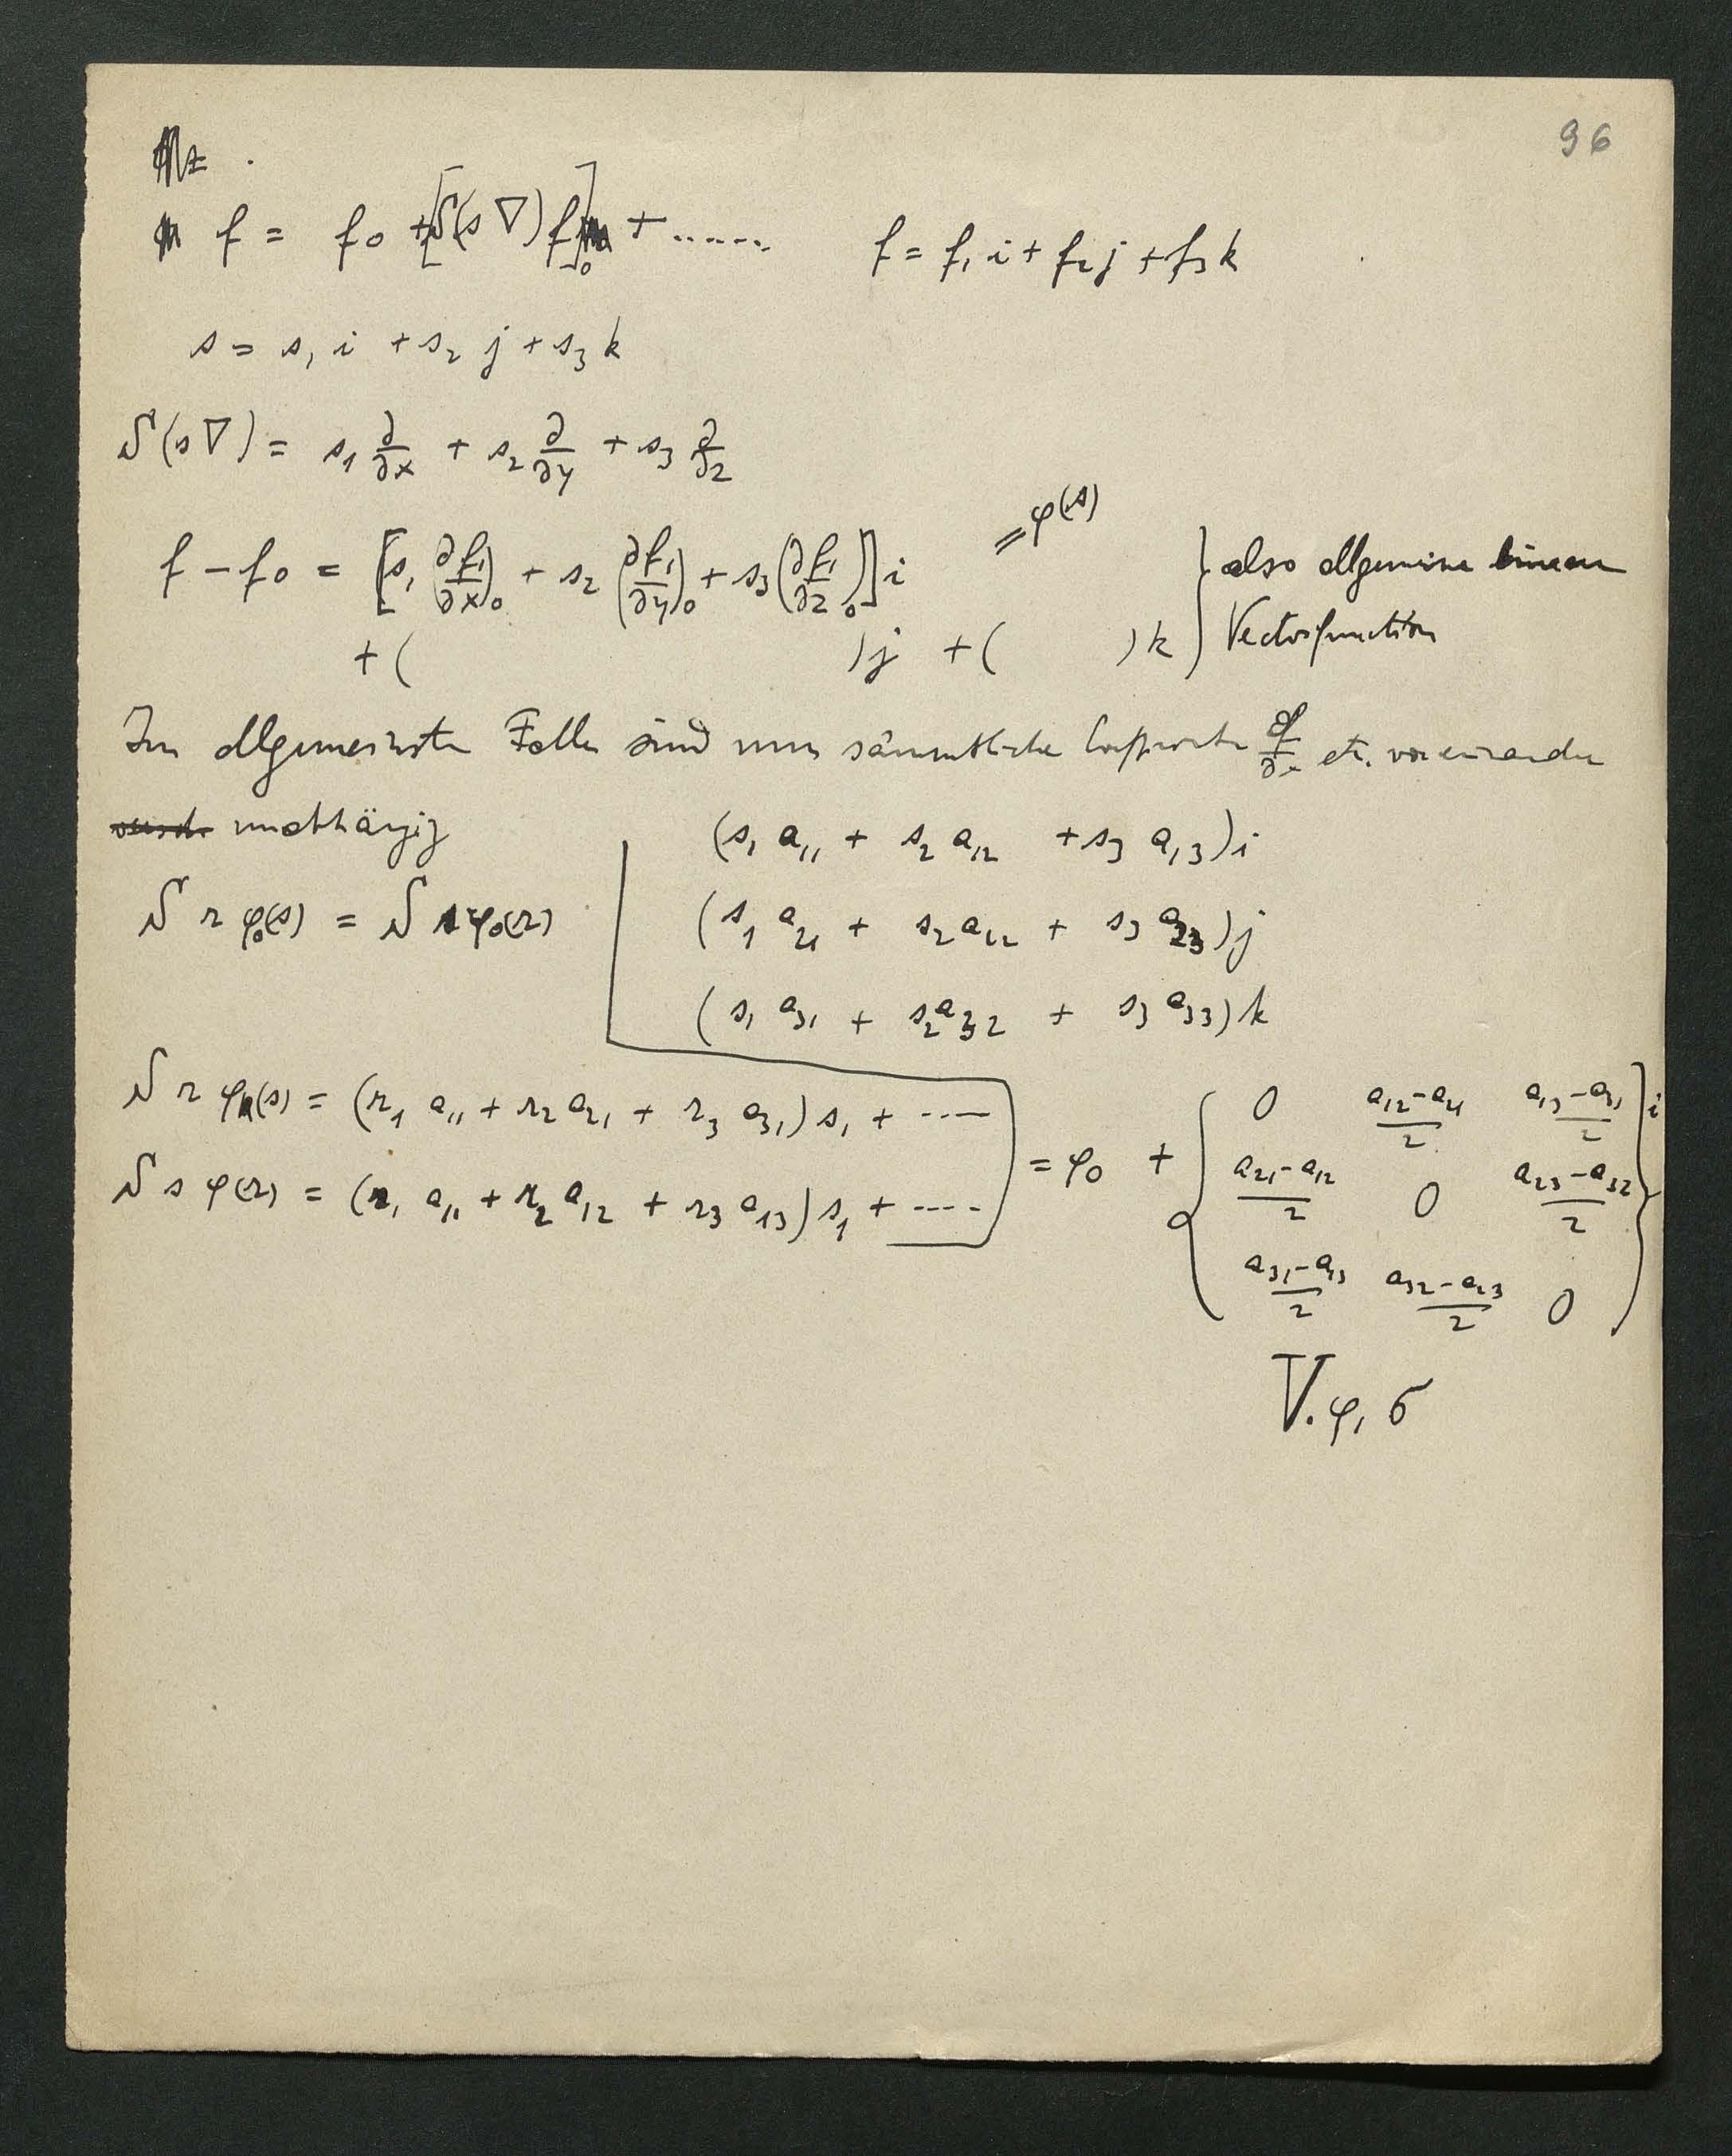 96
f = f₀ + [S(s∇)f]₀ + ..... f = f₁ i + f₂ j + f₃ k
s = s₁ i + s₂ j + s₃ k
S(s∇) = s₁ ∂/∂x + s₂ ∂/∂y + s₃ ∂/∂z
f − f₀ = [s₁ (∂f₁/∂x)₀ + s₂ (∂f₁/∂y)₀ + s₃ (∂f₁/∂z)₀] i = φ(s) } also allgemeine lineare
+ ( ) j + ( ) k } Vectorfunction
Im allgemeinsten Falle sind nun sämmtliche ∂f/∂x etc. von einander
unabhängig (s₁ a₁₁ + s₂ a₁₂ + s₃ a₁₃) i
S r φ₀(s) = S s φ₀(r) (s₁ a₂₁ + s₂ a₂₂ + s₃ a₂₃) j
(s₁ a₃₁ + s₂ a₃₂ + s₃ a₃₃) k
S r φ(s) = (r₁ a₁₁ + r₂ a₂₁ + r₃ a₃₁) s₁ + ....
S s φ(r) = (r₁ a₁₁ + r₂ a₁₂ + r₃ a₁₃) s₁ + ....
= φ₀ + { 0 (a₁₂−a₂₁)/2 (a₁₃−a₃₁)/2 } i
(a₂₁−a₁₂)/2 0 (a₂₃−a₃₂)/2
(a₃₁−a₁₃)/2 (a₃₂−a₂₃)/2 0
V.φ, σ